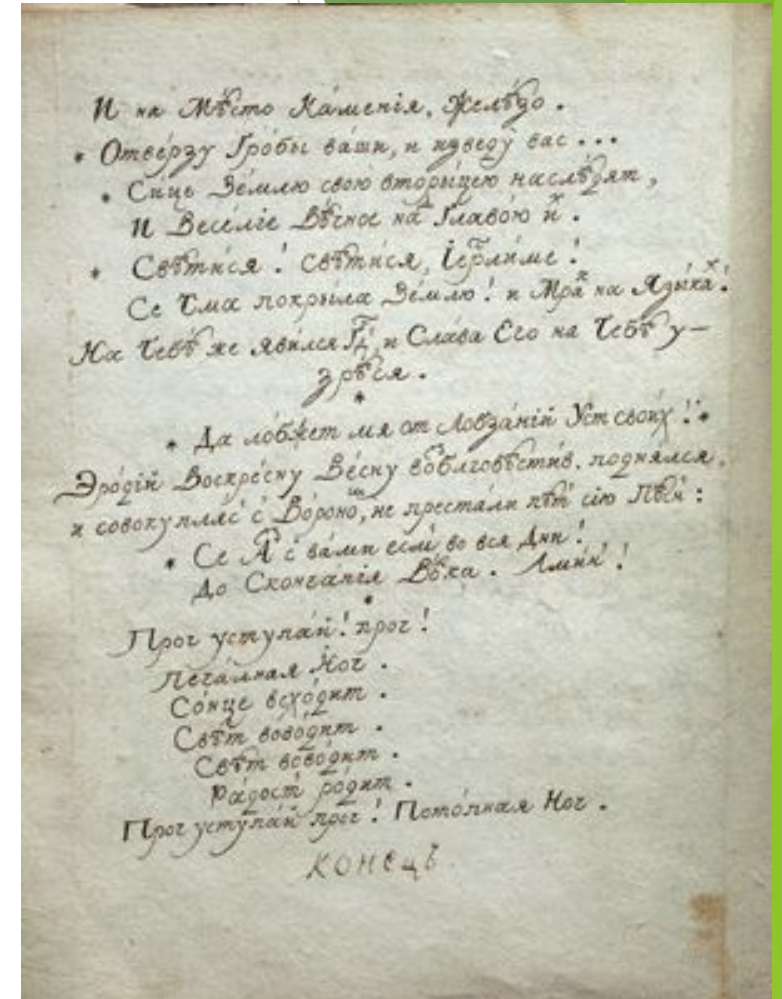 И на Мѣсто Ка́менія, Желѣ́зо.
* Отве́рзу Гро́бы ва́ши, и изведу̀ вас...
* Сице Зе́млю свою вторы́цею наслѣ́дят,
И Веселіе Вѣ́чное на Главо́ю и́х.
* Свѣти́ся! свѣти́ся, Іерⷭли́ме!
Се Тма покры́ла Зе́млю! и Мраⷦ на Язы́каⷯ!
На Тебѣ́ же яви́лся Гдⷭь, и Сла́ва Его на Тебѣ̀ у-
зрѣ́ся.
*
* Да ло́бжет мя от Лобза́ній Уст свои́х! *
Эро́дій Воскре́сну Ве́сну воⷥблговѣсти́в. поднялся,
и совокупляс́ с́ Во́роноⷨ, не престали пѣт́ сію Пѣсн́:
* Се Аⷥ с́ ва́ми есмı́ во вся Дни!
До Сконча́нія Вѣ́ка. Ами́н́!
*
Проч уступа́й! проч!
Печа́лная Ноч.
Со́нце всхо́дит.
Свѣ́т вово́дит.
Свѣ́т вово́дит.
Ра́дост́ ро́дит.
Проч уступа́й проч! Пото́пная Ноч.
КОНЕЦЪ